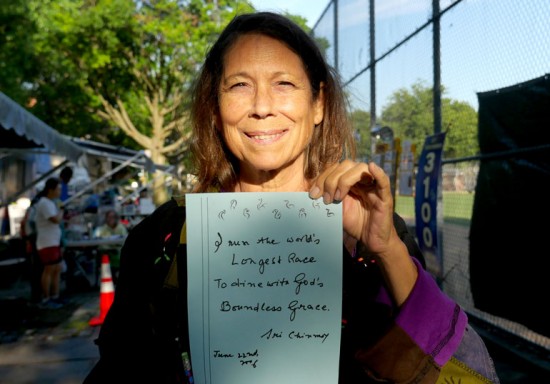 I run the world's
Longest Race
To dine with God's
Boundless Grace.
Sri Chinmoy
June 22nd,
3100